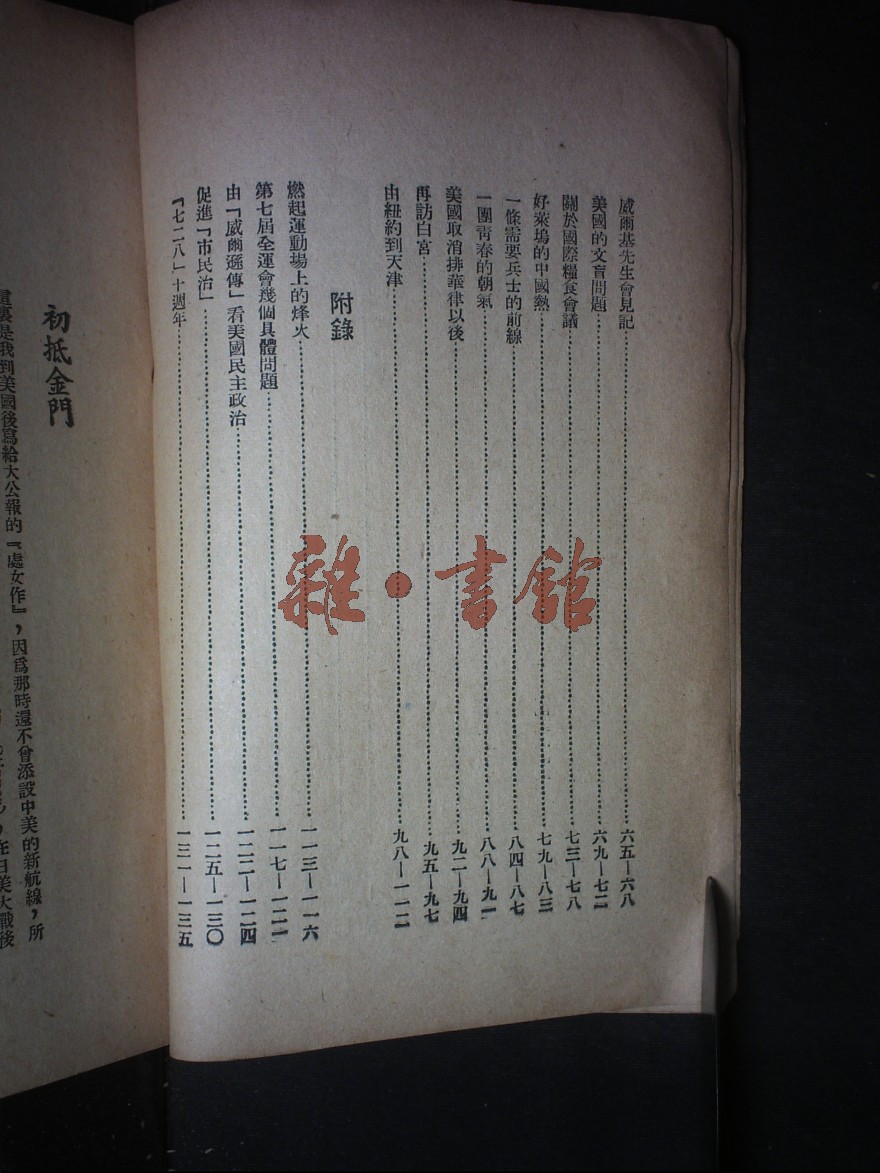 威爾基先生會見記……六五—六八
美國的文盲問題……六九—七二
關於國際糧食會議……七三—七八
好萊塢的中國熱……七九—八三
一條需要兵士的前線……八四—八七
一團青春的朝氣……八八—九一
美國取消排華律以後……九二—九四
再訪白宮……九五—九七
由紐約到天津……九八—一一二
附錄
燃起運動場上的烽火……一一三—一一六
第七屆全運會幾個具體問題……一一七—一二一
由「威爾遜傳」看美國民主政治……一二二—一二四
促進「市民治」……一二五—一三〇
『七二八』十週年……一三一—一三五
初抵金門
這裏是我到美國後寫給大公報的『處女作』，因爲那時還不曾添設中美的新航線，所
在日美大戰後
雜·書館